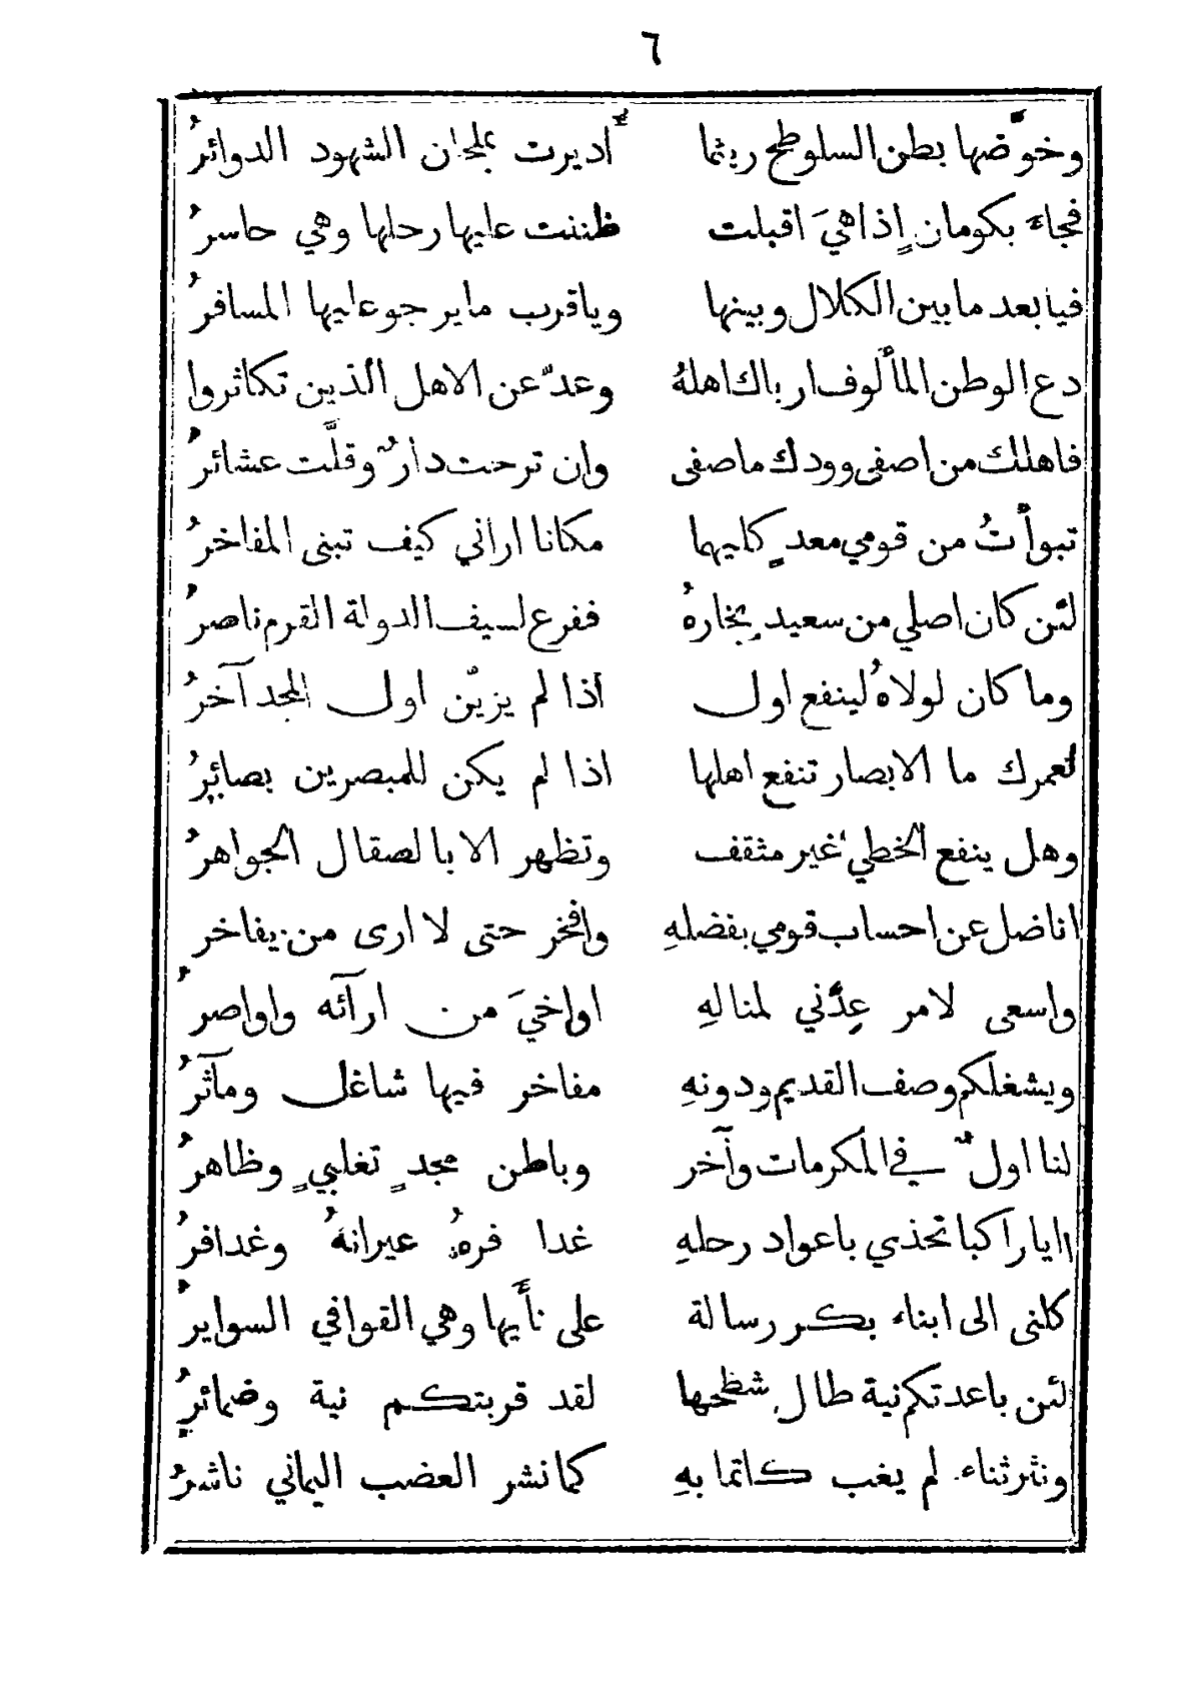 ٦
وخوَّضها بطن السلوطح ريثما أُديرت بملحان الشهود الدوائرُ
فجاءَ بكومان إِذا هيَ اقبلت ظننت عليها رحلها وهي حاسرُ
فيا بعد ما بين الكلال وبينها ويا قرب ما يرجو عليها المسافرُ
دع الوطن المأْلوف اربك اهلهُ وعدّ عن الاهل الذين تكاثروا
فاهلك من اصفى وودك ما صفى وان ترحت دارٌ وقلَّت عشائرُ
تبوأْتُ من قومي معدٍ كليهما مكانا اراني كيف تبنى المفاخرُ
لئن كان اصلي من سعيد بخارهُ ففرع لسيف الدولة القرم ناصرُ
وما كان لولاهُ لينفع اول اذا لم يزيّن اول المجد آخرُ
لعمرك ما الابصار تنفع اهلها اذا لم يكن للمبصرين بصائرُ
وهل ينفع الخطي غير مثقف وتظهر الا بالصقال الجواهرُ
اناضل عن احساب قومي بفضلهِ وافخر حتى لا ارى من يفاخر
واسعى لامر عِدَّني لمنالهِ اواخيَ من ارآئه واواصرُ
ويشغلكم وصف القديم ودونهِ مفاخر فيها شاغل ومآثرُ
لنا اولٌ في المكرمات وآخر وباطن مجدٍ تغلبيٍ وظاهرُ
اايا راكبا تحذي باعواد رحلهِ غدا فرهُ عيرانهُ وغدافرُ
كلنى الى ابناء بكر رسالة على نأْيها وهي القوافي السوايرُ
لئن باعدتكم نية طال شظحها لقد قربتكم نية وضمائرُ
ونثر ثناء لم يغب كاتما بهِ كما نشر العضب اليماني ناشرُ